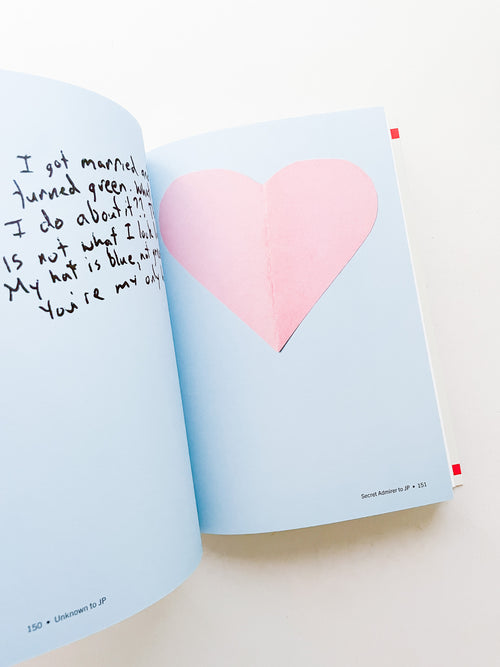 I got married
turned green.
I do about it??
is not what I look
My hat is blue, not
You're my only
150 • Unknown to JP
Secret Admirer to JP • 151